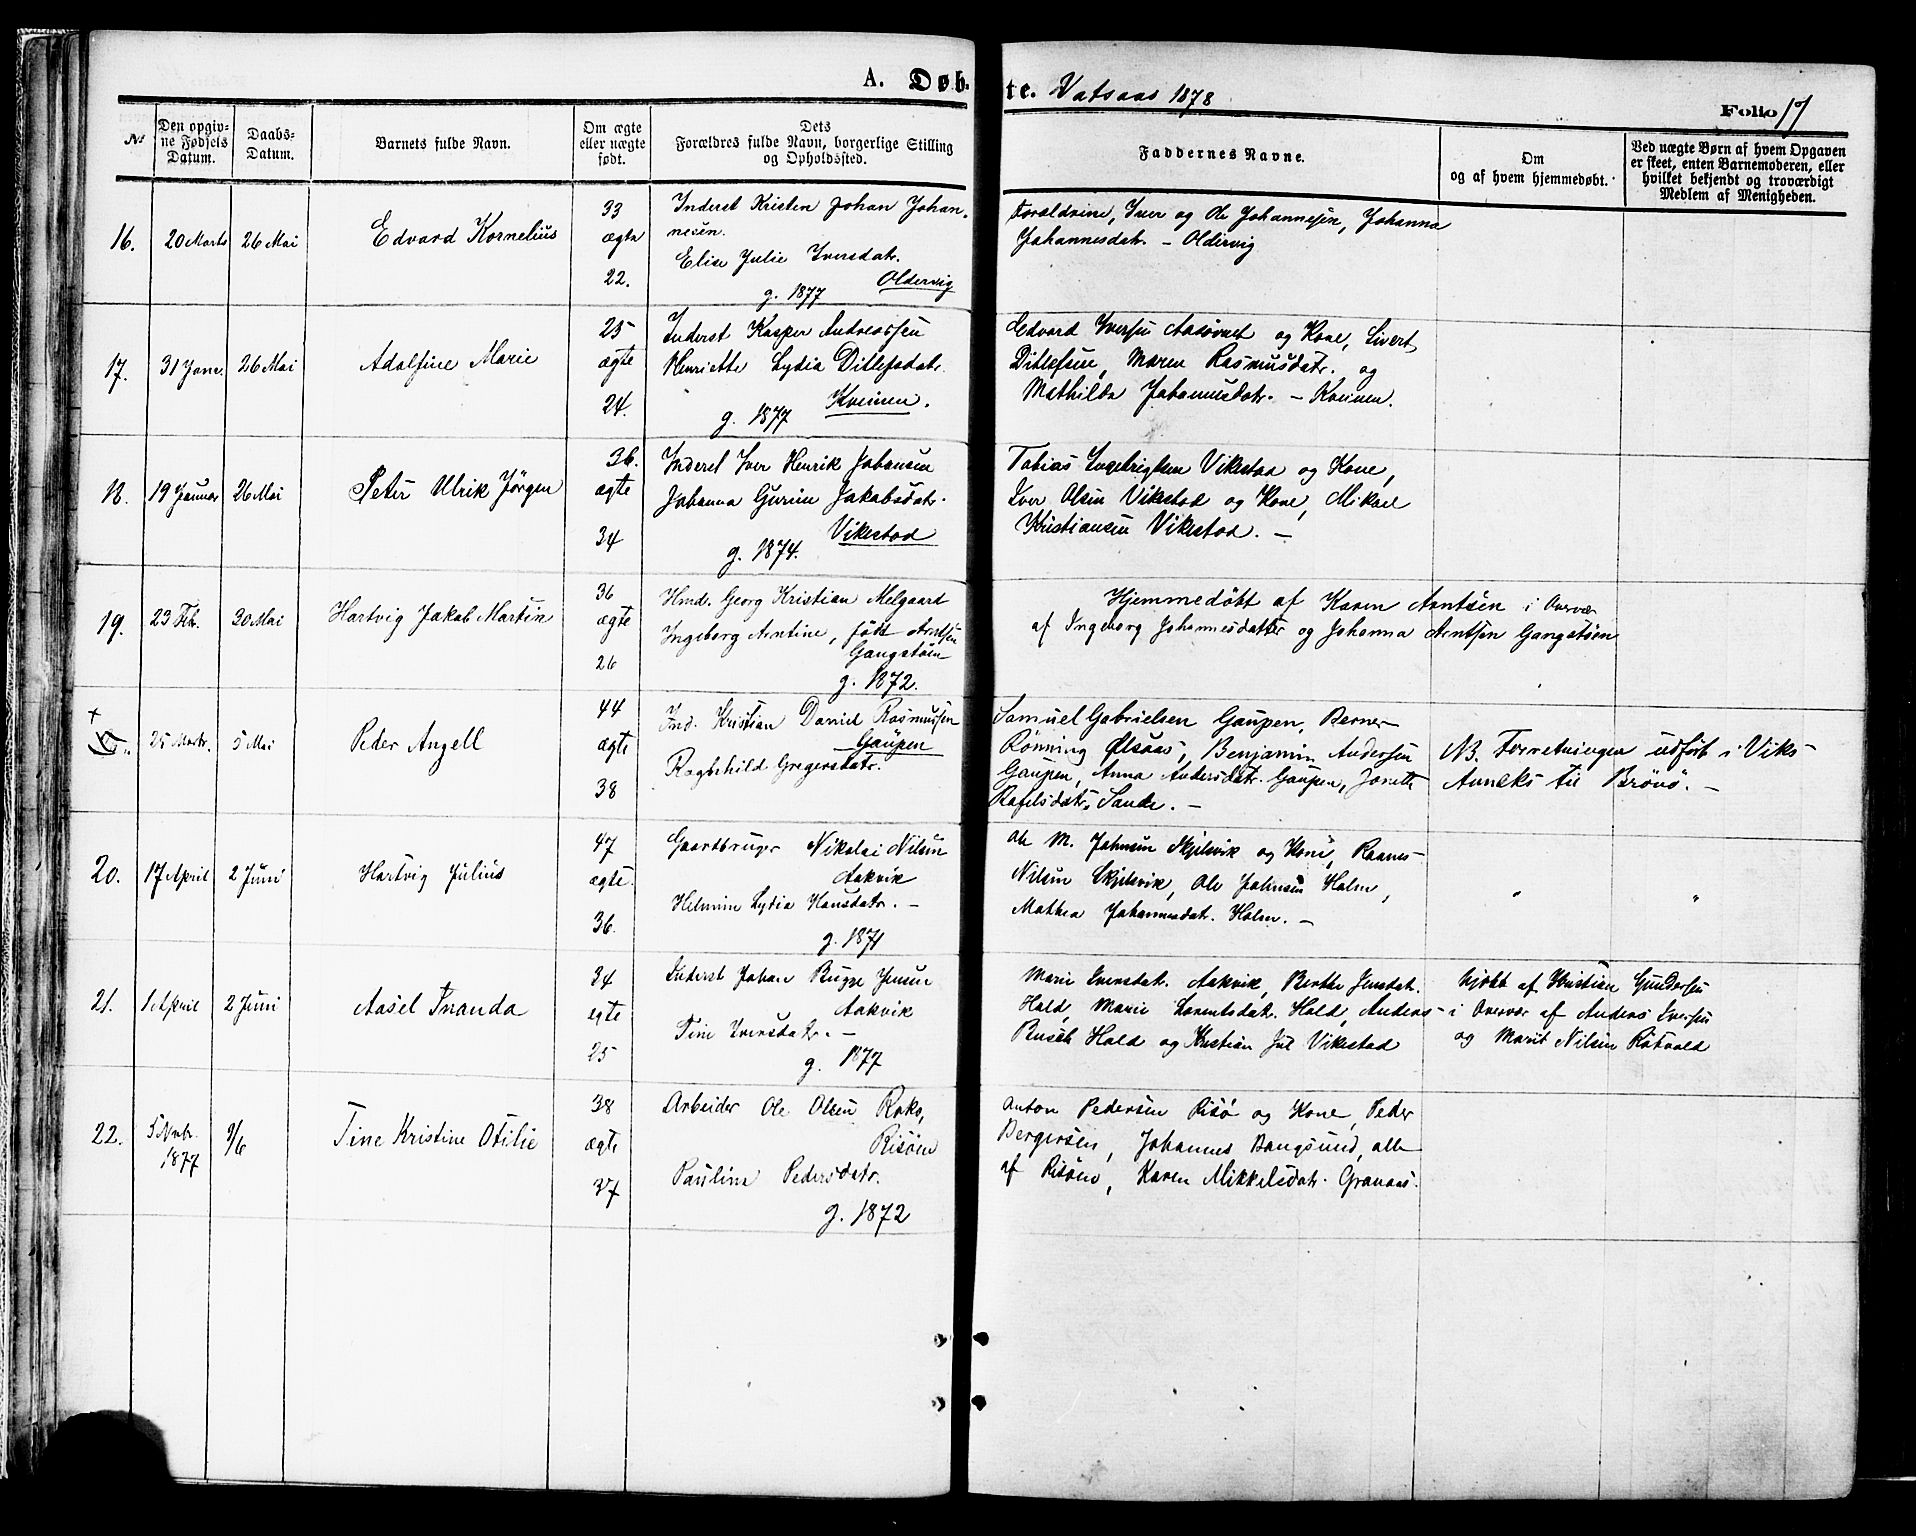 A. Døbte. Vatsaas 1878
Folio 17
№
Den opgiv-
ne Fødsels
Datum.
Daabs-
Datum.
Barnets fulde Navn.
Om ægte
eller uægte
født.
Dets
Forældres fulde Navn, borgerlige Stilling
og Opholdssted.
Faddernes Navne.
Om
og af hvem hjemmedøbt.
Ved uægte Børn af hvem Opgaven
er skeet, enten Barnemoderen, eller
hvilket bekjendt og troværdigt
Medlem af Menigheden.
16. 20 Marts 26 Mai Edvard Kornelius
33
ægte
22.
Inderst Kristen Johan Johan-
nesen.
Elise Julie Iversdatr.
Oldervig
g. 1877
Forældrene, Iver og Ole Johannesen, Johanna
Johannesdatr. – Oldervig
17. 31 Janr. 26 Mai Adolfine Marie
25
ægte
24.
Inderst Kasper Andreassen
Henriette Lydia Ditlefsdatr.
Kveinen.
g. 1877
Edvard Iversen Aasøvnet og Kone, Sivert
Ditlefsen, Maren Rasmusdatr. og
Mathilda Johannesdatr. – Kveinen.
18. 19 Januar 26 Mai Peter Ulrik Jørgen
36.
ægte
34
Inderst Iver Henrik Johansen
Johanna Gurine Jakobsdatr.
Vikestad
g. 1874.
Tobias Ingebrigtsen Vikestad og Kone,
Iver Olsen Vikestad og Kone, Mikael
Kristiansen Vikestad. –
19. 23 Feb. 30 Mai Hartvig Jakob Martin
36
ægte
26
Hmd. Georg Kristian Melgaard
Ingeborg Arntine, født Arntsen
Gangstøen
g. 1872.
Hjemmedøbt af Karen Arntsen i Overvær
af Ingeborg Johannesdatter og Johanna Arntsen Gangstøen
25 Marts. 5 Mai Peder Angell
44
ægte
38
Ind. Kristian Daniel Rasmussen
Gaupen
Ragnhild Gregersdatr.
Samuel Gabrielsen Gaupen, Berner
Rønning Ølsaas, Benjamin Andersen
Gaupen, Anna Andersdatr. Gaupen, Jonette
Rafelsdatr. Sande. –
NB. Forretningen udført i Viks
Anneks til Brønø. –
20. 17 April 2 Juni Hartvig Julius
47
ægte.
36.
Gaardbruger Nikolai Nilsen
Aakvik
Helmine Lydia Hansdatr. –
g. 1871
Ole M. Johnsen Skjelsvik og Kone, Raanes
Nilsen Skjelsvik, Ole Johnsen Holm,
Mathea Johannesdatr. Holm. –
21. 1 April 2 Juni Aasel Inanda
34
ægte
25
Inderst Johan Bugge Jensen
Aakvik
Tine Iversdatr. –
g. 1877
Marie Iversdatr. Aakvik, Berthe Jensdatr.
Hald, Marie Lorentsdatr. Hald, Anders
Busch Hald og Kristian Jul Vikestad
hjdøbt af Kristian Gundersen
i Overvær af Anders Iversen
og Marit Nilsen Røtvold
22. 5 Novbr.
1877
9/6
Tine Kristine Otilie
38
ægte
37
Arbeider Ole Olsen Roko,
Risøen
Pauline Pedersdatr.
g. 1872
Anton Pedersen Risø og Kone, Peder
Bergersen, Johannes Bangsund, alle
af Risøen, Karen Mikkelsdatr. Granaas.